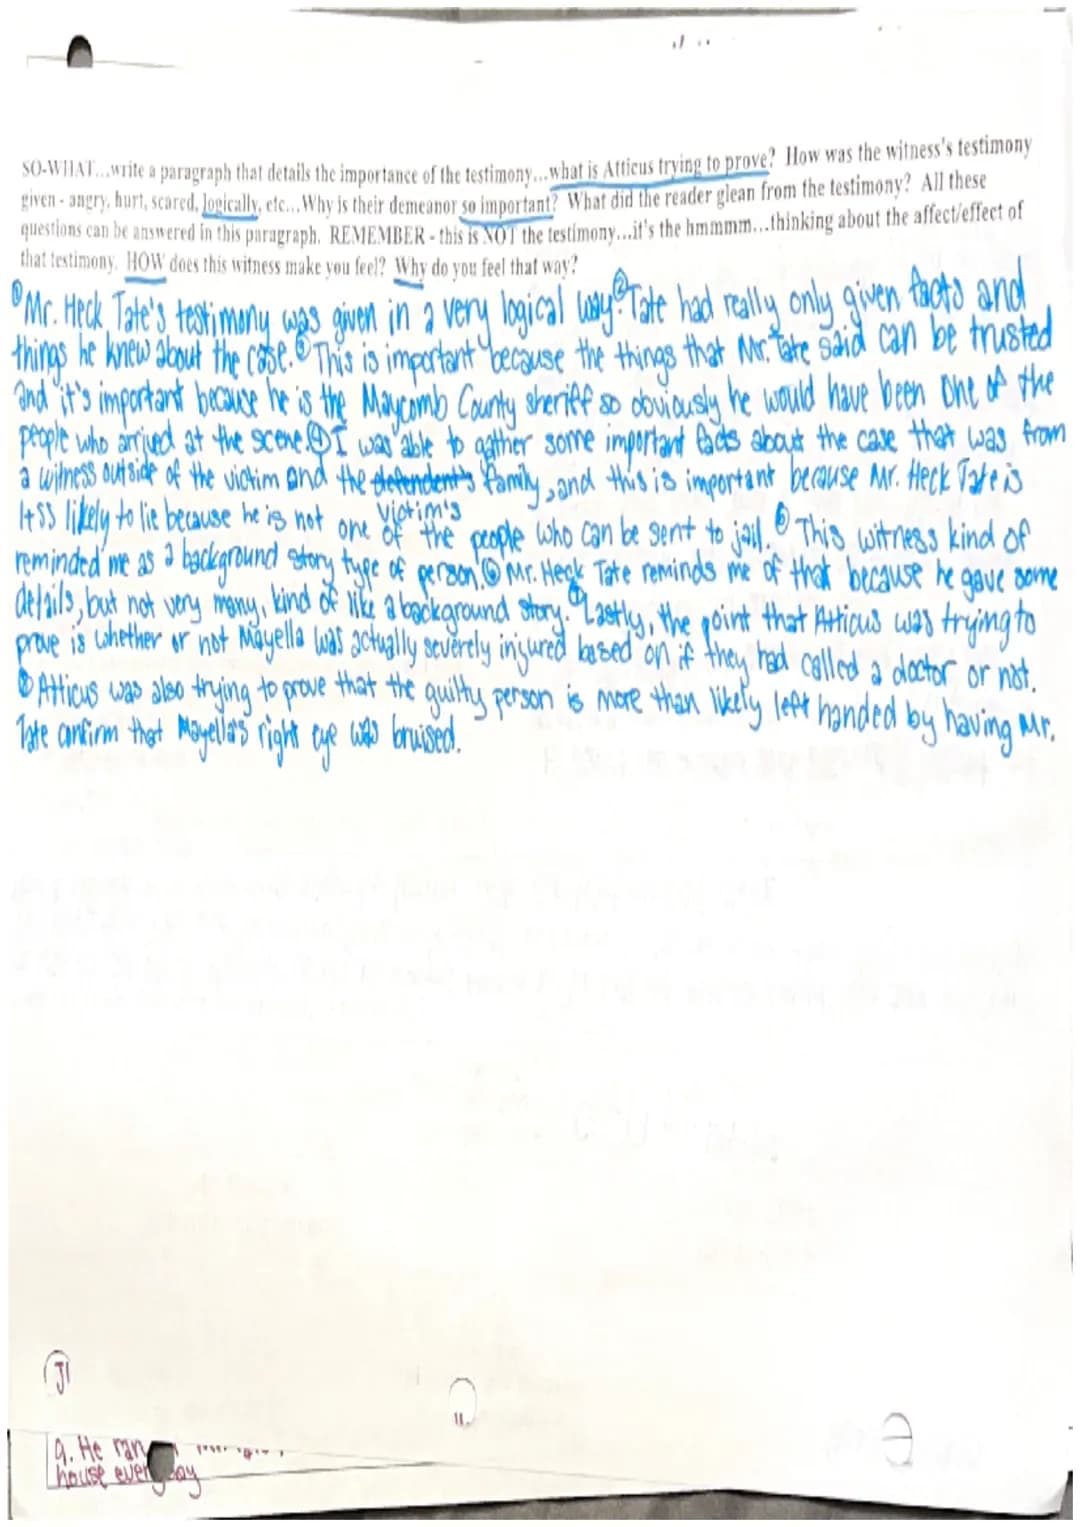 SO-WHAT...write a paragraph that details the importance of the testimony...what is Atticus trying to prove? How was the witness's testimony
given - angry, hurt, scared, logically, etc...Why is their demeanor so important? What did the reader glean from the testimony? All these
questions can be answered in this paragraph. REMEMBER - this is NOT the testimony...it's the hmmmm...thinking about the affect/effect of
that testimony. HOW does this witness make you feel? Why do you feel that way?
① Mr. Heck Tate's testimony was given in a very logical way. ② Tate had really only given facts and
things he knew about the case. ③ This is important because the things that Mr. Tate said can be trusted
and it's important because he is the Maycomb County sheriff so obviously he would have been one of the
people who arrived at the scene. ④ I was able to gather some important facts about the case that was from
a witness outside of the victim and the defendent's family, and this is important because Mr. Heck Tate is
victim's
less likely to lie because he is not one of the people who can be sent to jail. ⑤ This witness kind of
reminded me as a background story type of person. ⑥ Mr. Heck Tate reminds me of that because he gave some
details, but not very many, kind of like a background story. ⑦ Lastly, the point that Atticus was trying to
prove is whether or not Mayella was actually severely injured based on if they had called a doctor or not.
⑧ Atticus was also trying to prove that the guilty person is more than likely left handed by having Mr.
Tate confirm that Mayella's right eye was bruised.
11.
9. He ran
house every day